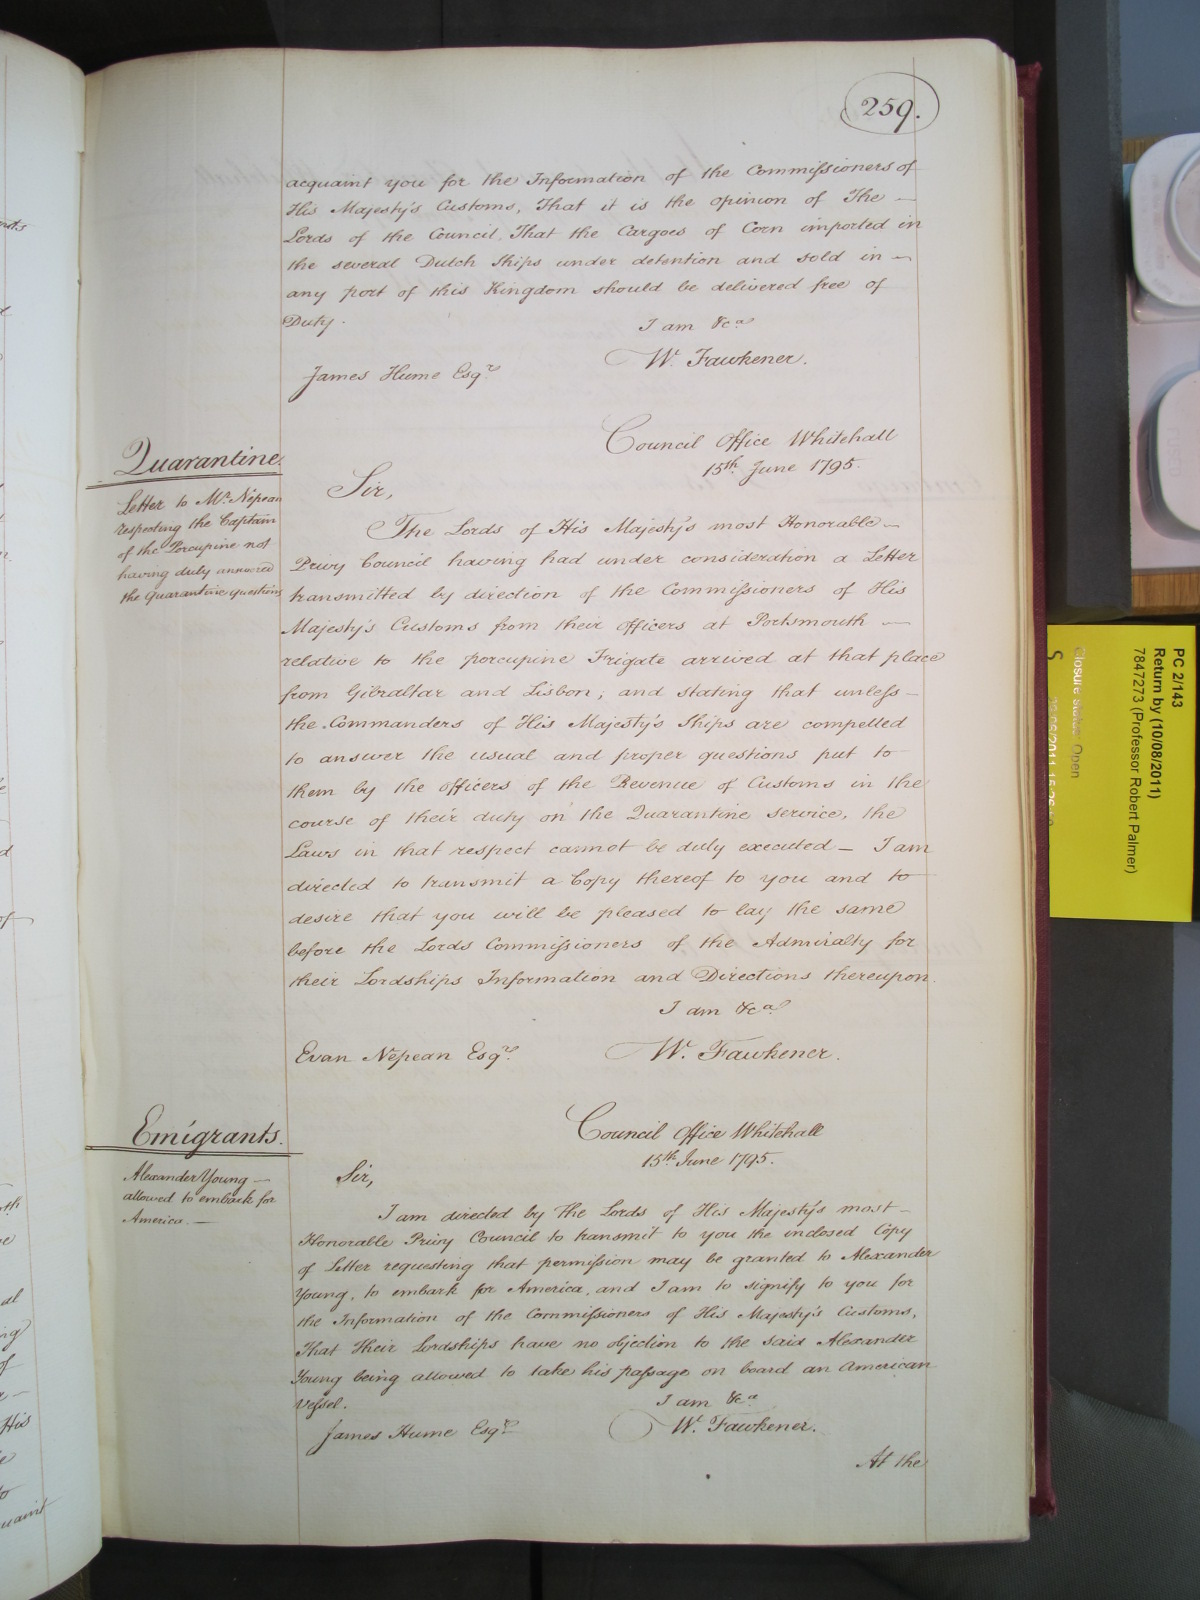 259.
acquaint you for the Information of the Commissioners of
His Majesty's Customs, That it is the opinion of The
Lords of the Council, That the Cargoes of Corn imported in
the several Dutch Ships under detention and sold in
any port of this Kingdom should be delivered free of
Duty.
I am &ca
W. Fawkener.
James Hume Esqre
Council Office Whitehall
15th June 1795.
Quarantine.
Letter to Mr. Nepean
respecting the Captain
of the Porcupine not
having duly answered
the Quarantine questions
Sir,
The Lords of His Majesty's most Honorable
Privy Council having had under consideration a Letter
transmitted by direction of the Commissioners of His
Majesty's Customs from their officers at Portsmouth
relative to the porcupine Frigate arrived at that place
from Gibraltar and Lisbon; and stating that unless
the Commanders of His Majesty's Ships are compelled
to answer the usual and proper questions put to
them by the officers of the Revenue of Customs in the
course of their duty on the Quarantine service, the
Laws in that respect cannot be duly executed — I am
directed to transmit a Copy thereof to you and to
desire that you will be pleased to lay the same
before the Lords Commissioners of the Admiralty for
their Lordships Information and Directions thereupon.
I am &ca
Evan Nepean Esqre. W. Fawkener.
Council Office Whitehall
15th June 1795.
Emigrants.
Alexander Young —
allowed to embark for
America. —
Sir,
I am directed by the Lords of His Majesty's most
Honorable Privy Council to transmit to you the inclosed Copy
of Letter requesting that permission may be granted to Alexander
Young, to embark for America, and I am to signify to you for
the Information of the Commissioners of His Majesty's Customs,
That Their Lordships have no objection to the said Alexander
Young being allowed to take his passage on board an American
Vessel.
I am &ca
James Hume Esqre W. Fawkener.
At the
PC 2/143
Return by (10/08/2011)
7847273 (Professor Robert Palmer)
Closure status: Open
S